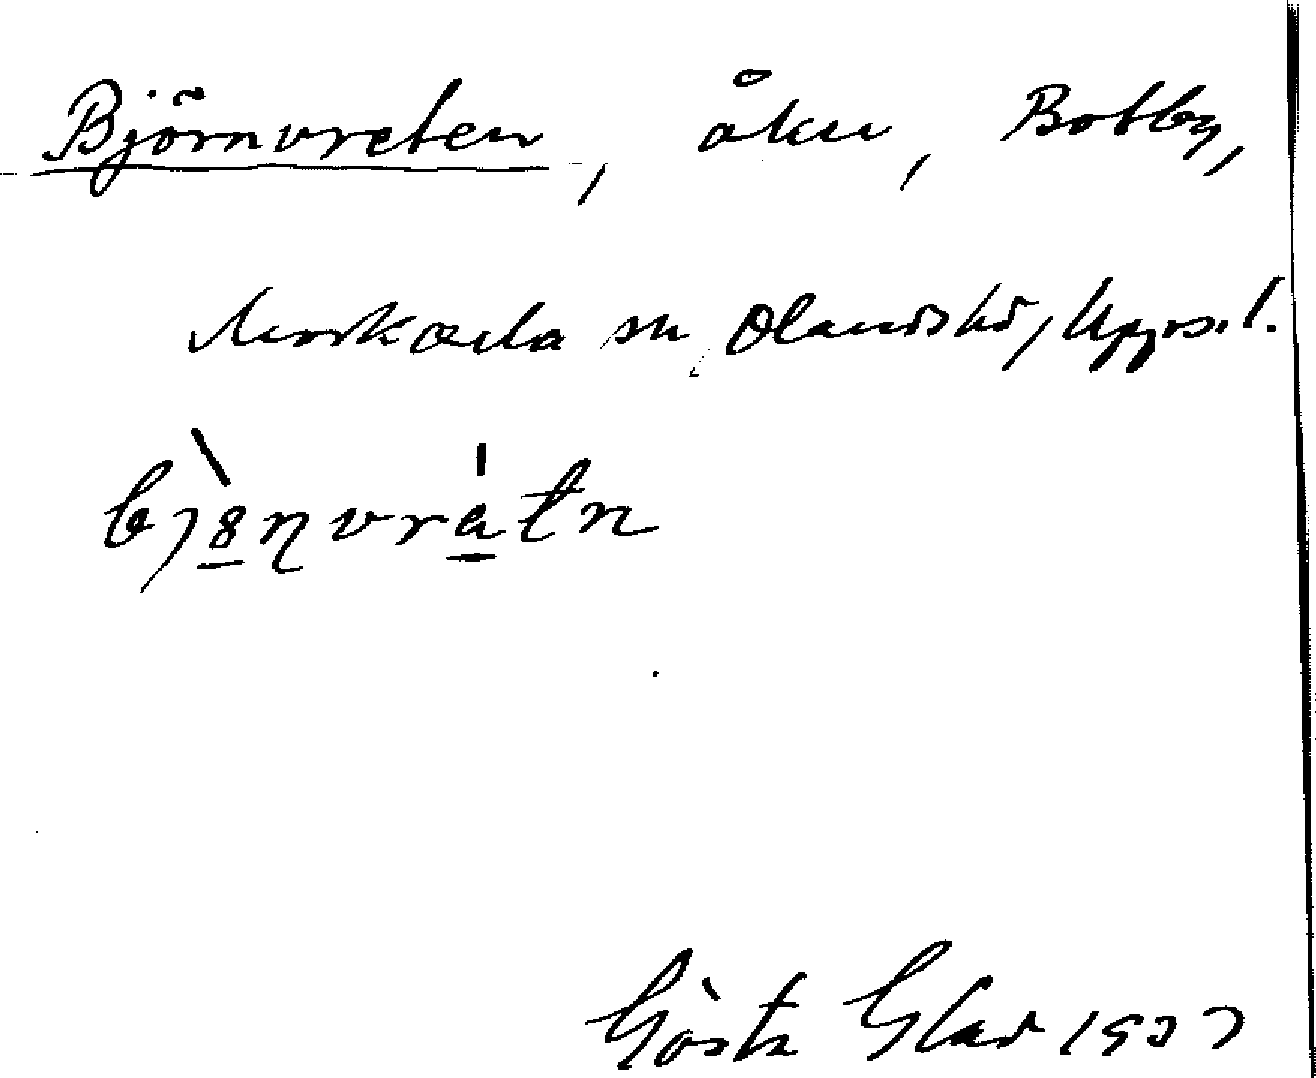 Björnvreten, åker, Botby,
Morkarla sn, Olands hd, Uppsl.
bjȣnvrätn
Gösta Glad 1933